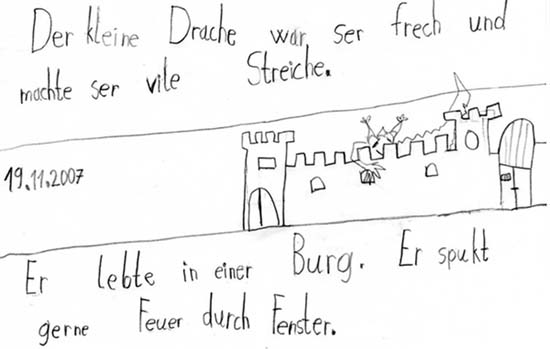 Der kleine Drache war ser frech und
machte ser vile Streiche.
19.11.2007
Er lebte in einer Burg. Er spukt
gerne Feuer durch Fenster.